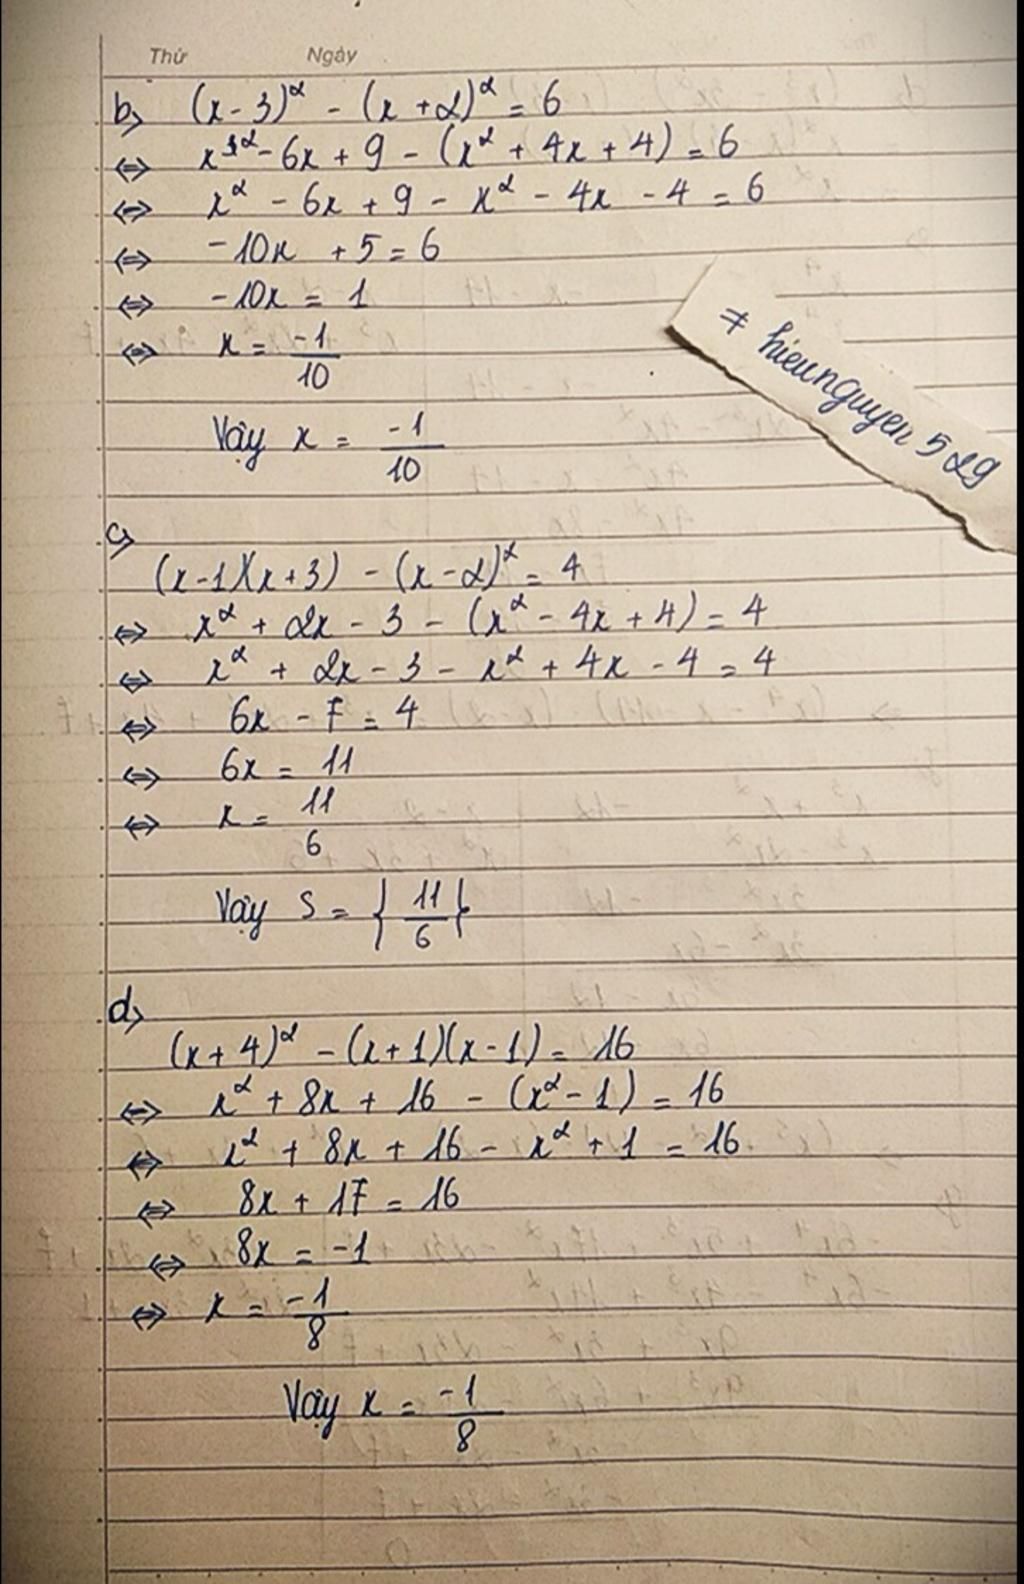 Thứ Ngày
b) (x-3)² - (x+2)² = 6
⇔ x² - 6x + 9 - (x² + 4x + 4) = 6
⇔ x² - 6x + 9 - x² - 4x - 4 = 6
⇔ -10x + 5 = 6
⇔ -10x = 1
⇔ x = -1/10
Vậy x = -1/10
≠ hieunguyen 529
c)
(x-1)(x+3) - (x-2)² = 4
⇔ x² + 2x - 3 - (x² - 4x + 4) = 4
⇔ x² + 2x - 3 - x² + 4x - 4 = 4
⇔ 6x - 7 = 4
⇔ 6x = 11
⇔ x = 11/6
Vậy S = {11/6}
d)
(x+4)² - (x+1)(x-1) = 16
⇔ x² + 8x + 16 - (x² - 1) = 16
⇔ x² + 8x + 16 - x² + 1 = 16
⇔ 8x + 17 = 16
⇔ 8x = -1
⇔ x = -1/8
Vậy x = -1/8